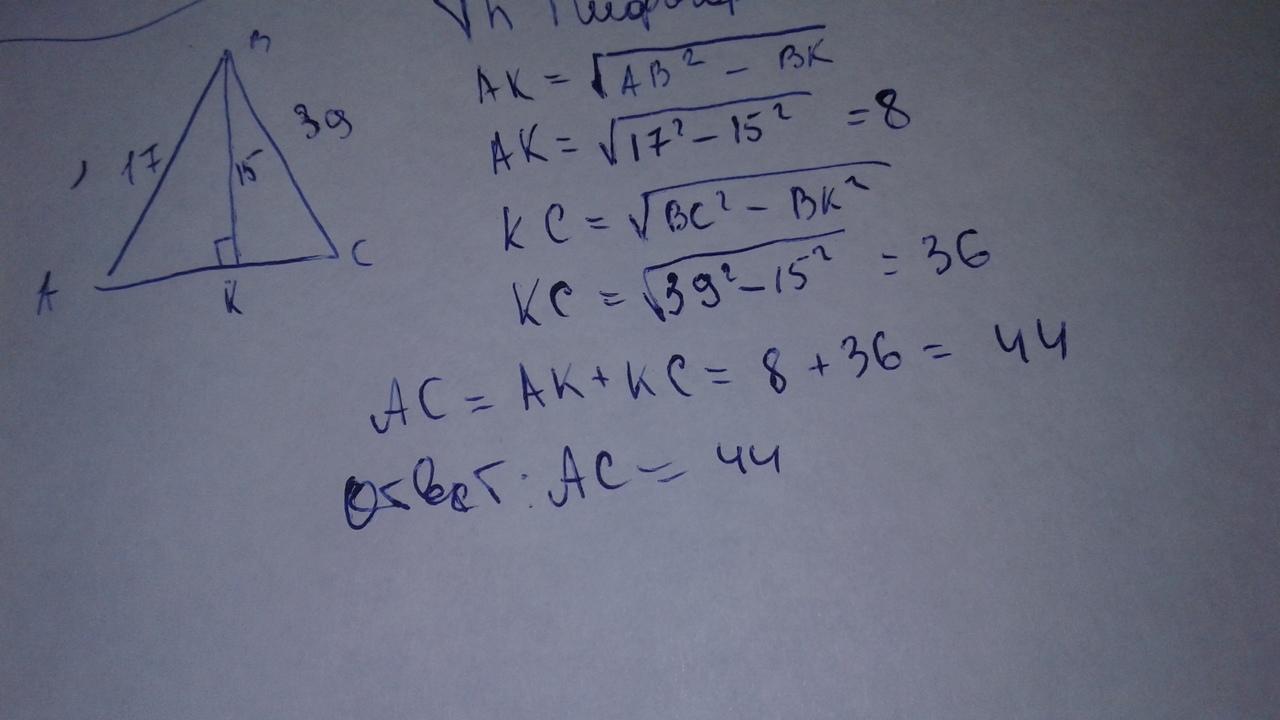 B
39
17
15
A
K
C
AK = √AB² - BK
AK = √17² - 15² = 8
KC = √BC² - BK²
KC = √39² - 15² = 36
AC = AK + KC = 8 + 36 = 44
Ответ: AC = 44